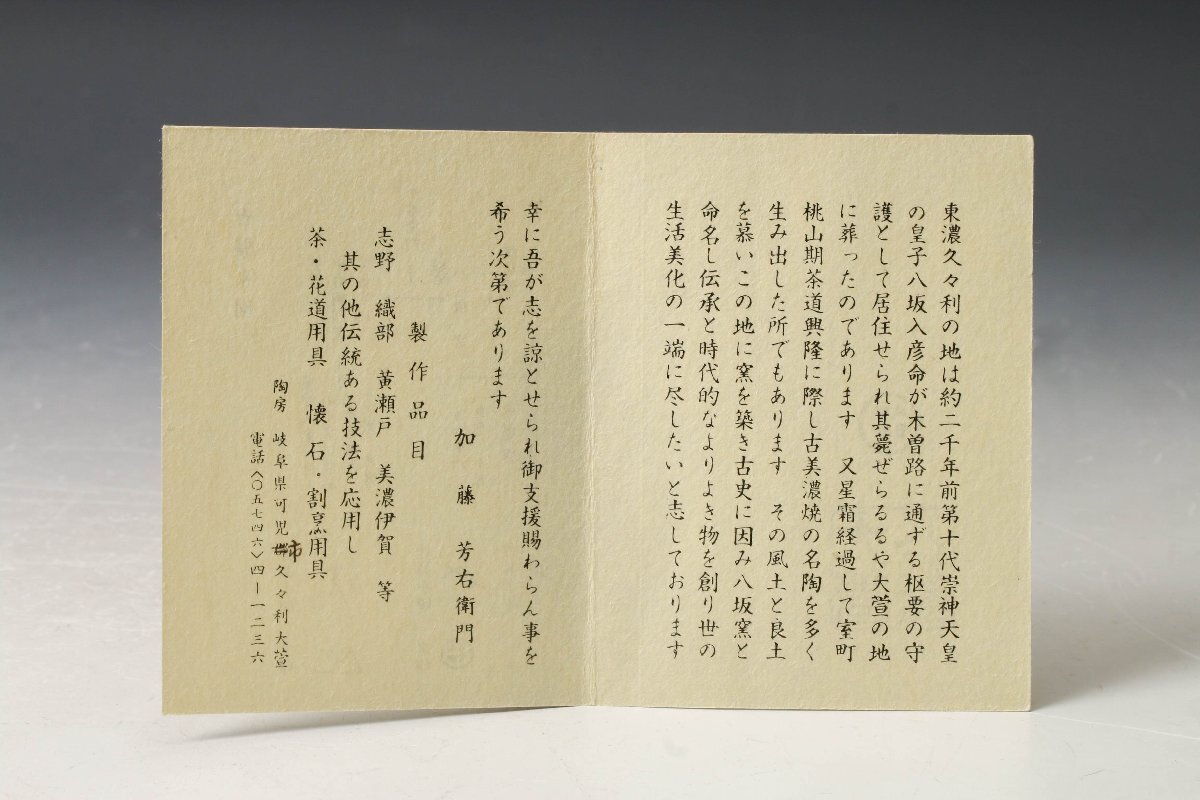 東濃久々利の地は約二千年前第十代崇神天皇
の皇子八坂入彦命が木曽路に通ずる枢要の守
護として居住せられ其薨ぜらるるや大萱の地
に葬ったのであります　又星霜経過して室町
桃山期茶道興隆に際し古美濃焼の名陶を多く
生み出した所でもあります　その風土と良土
を慕いこの地に窯を築き古史に因み八坂窯と
命名し伝承と時代的なよりよき物を創り世の
生活美化の一端に尽したいと志しております
幸に吾が志を諒とせられ御支援賜わらん事を
希う次第であります
加藤芳右衛門
製作品目
志野　織部　黄瀬戸　美濃伊賀　等
其の他伝統ある技法を応用し
茶・花道用具　懐石・割烹用具
陶房　岐阜県可児市久々利大萱
電話〈〇五七四六〉四ー一二三六